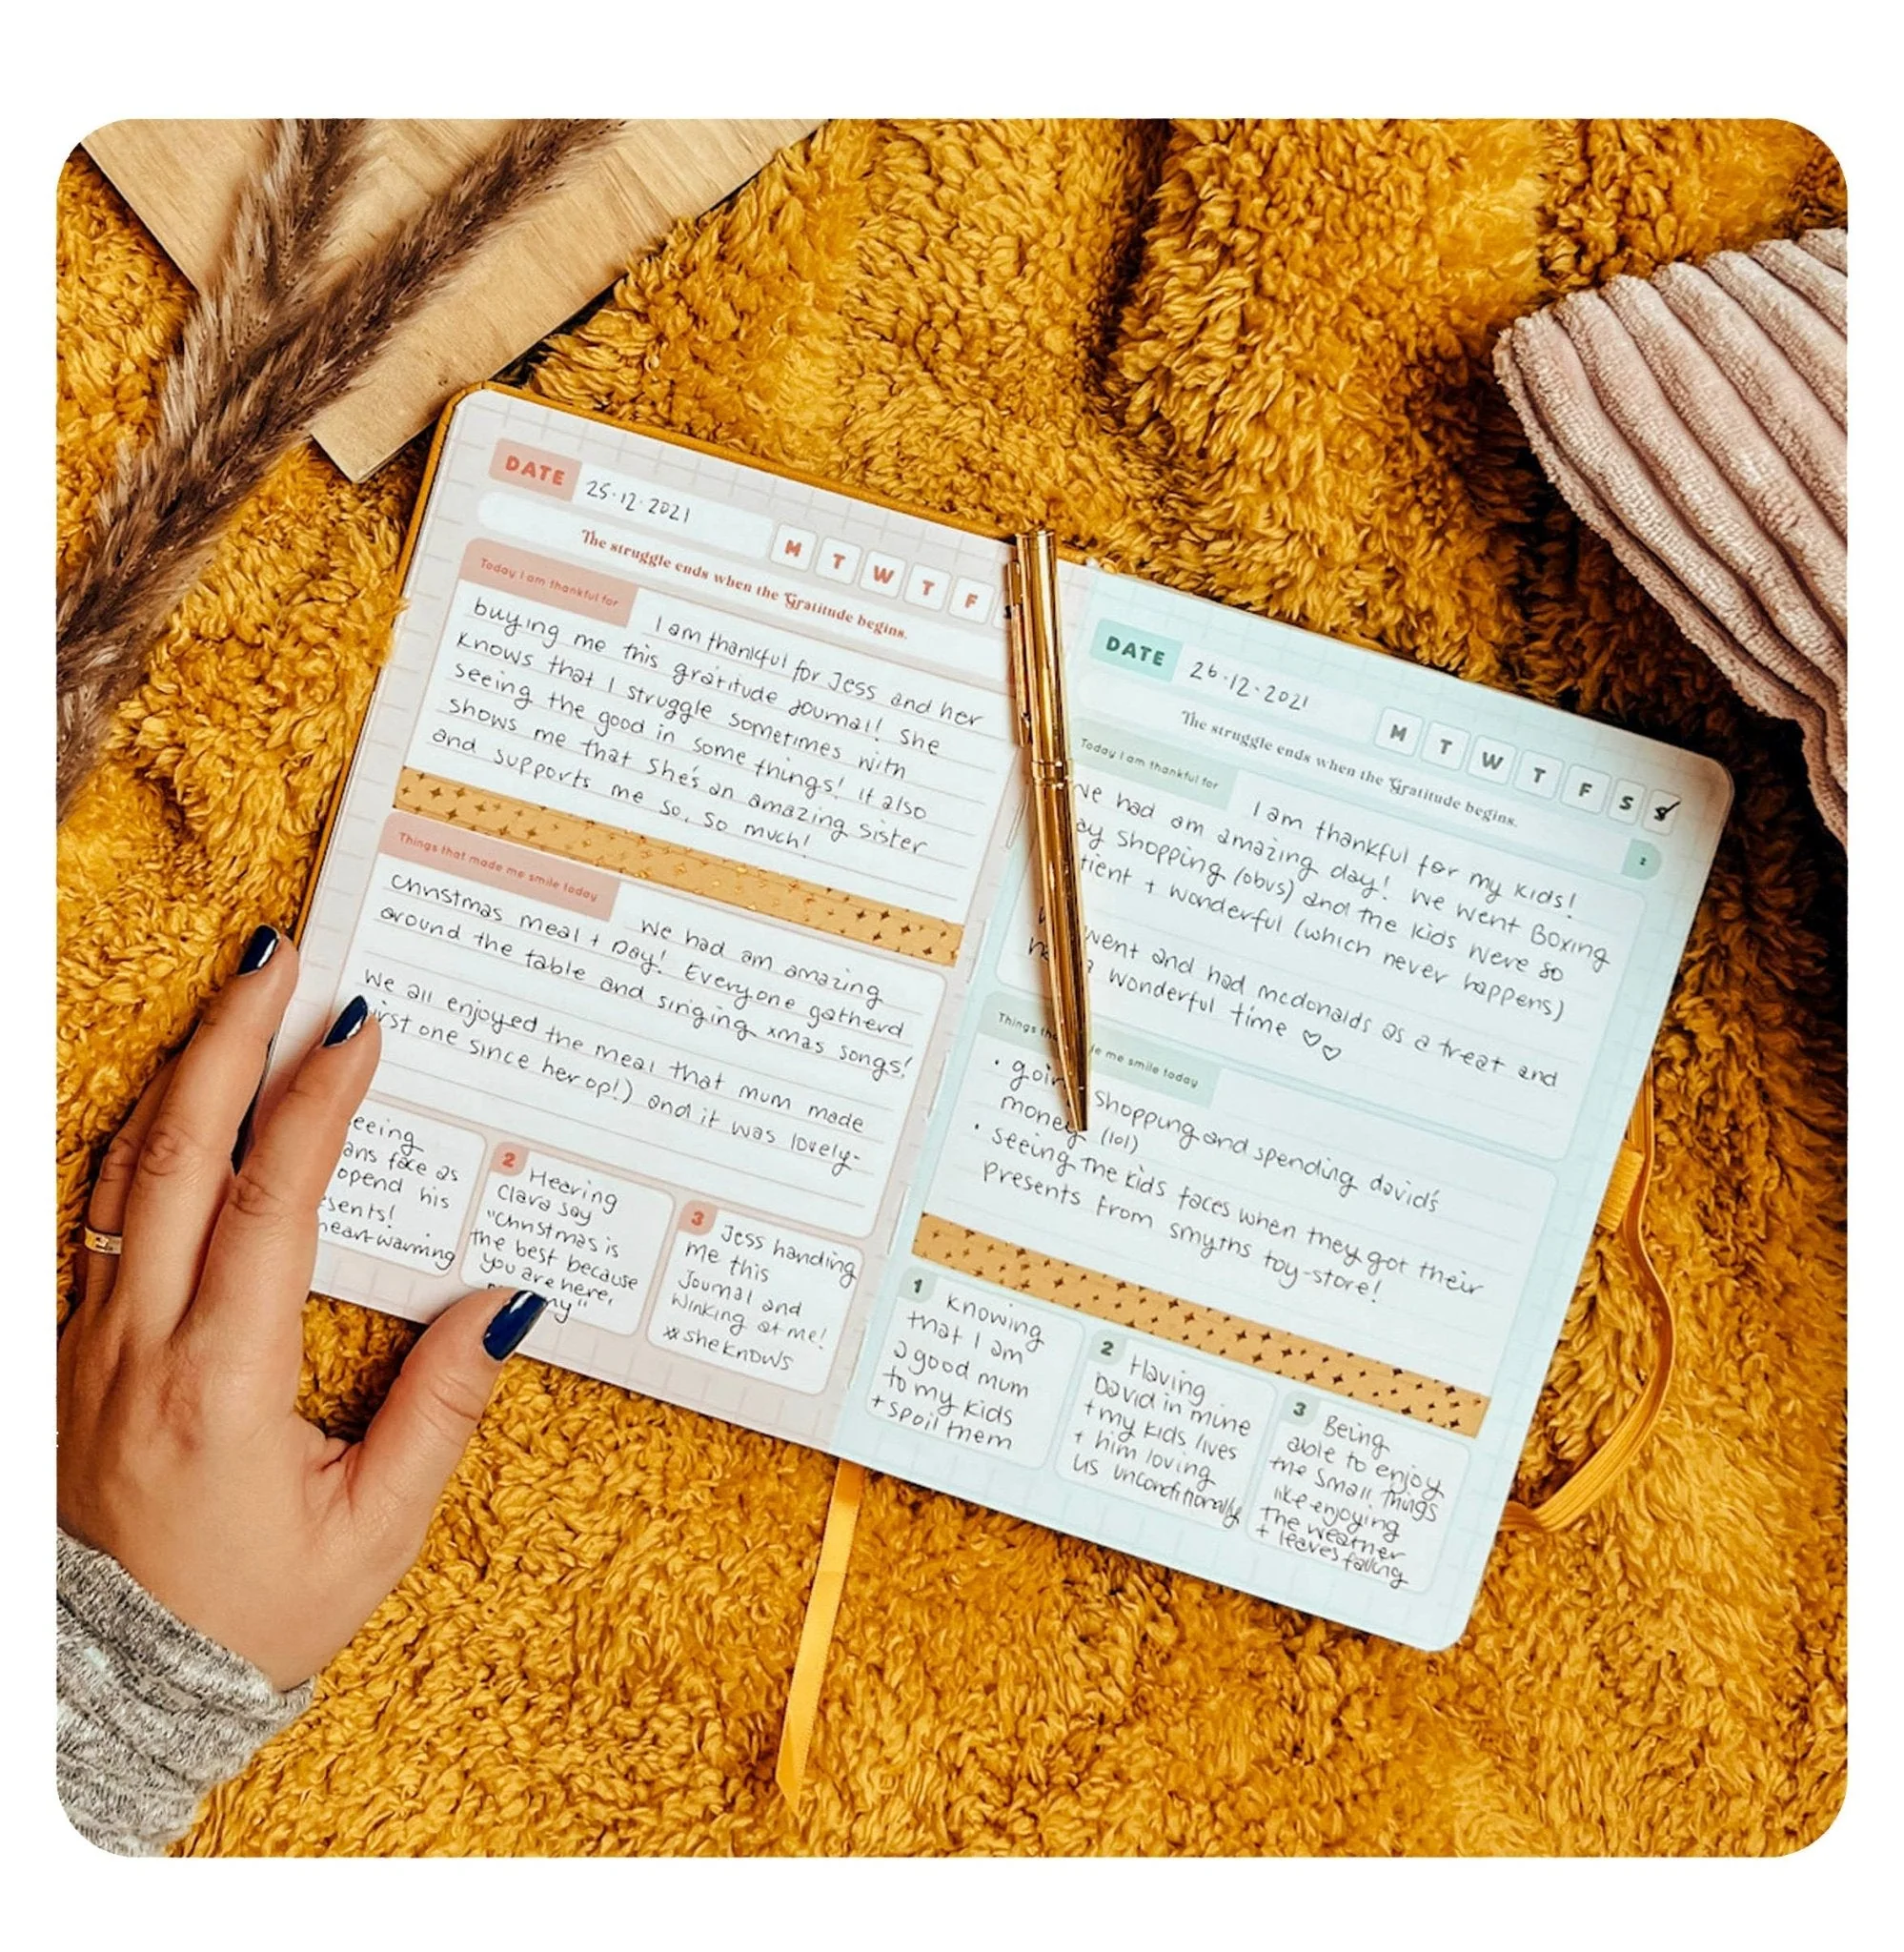 DATE 25.12.2021
M T W T F
The struggle ends when the Gratitude begins.
Today I am thankful for
I am thankful for Jess and her
buying me this gratitude journal! She
knows that I struggle sometimes with
seeing the good in some things! It also
shows me that she's an amazing sister
and supports me so, so much!
Things that made me smile today
We had am amazing
Christmas meal + Day! Everyone gatherd
around the table and singing xmas songs!
We all enjoyed the meal that mum made
first one since her op!) and it was lovely.
face as
opend his
heart-warming
2 Heering
Clara say
"Christmas is
the best because
you are here,
3 Jess handing
me this
Journal and
winking at me!
sheknows
DATE 26.12.2021
M T W T F S S
The struggle ends when the Gratitude begins.
Today I am thankful for
I am thankful for my kids!
had am amazing day! We went Boxing
shopping (obvs) and the kids were so
+ wonderful (which never happens)
went and had mcdonalds as a treat and
wonderful time ♡♡
Things me smile today
• going shopping and spending david's
money (lol)
• seeing the kids faces when they got their
presents from smyths toy-store!
1 Knowing
that I am
a good mum
to my kids
+ spoil them
2 Having
David in mine
+ my kids lives
+ him loving
us unconditionally
3 Being
able to enjoy
the small things
like enjoying
the weather
+ leaves falling